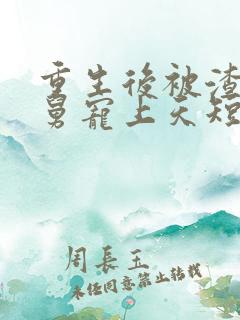 重生後被渣
舅寵上天短
周長玉
未經同意禁止轉載